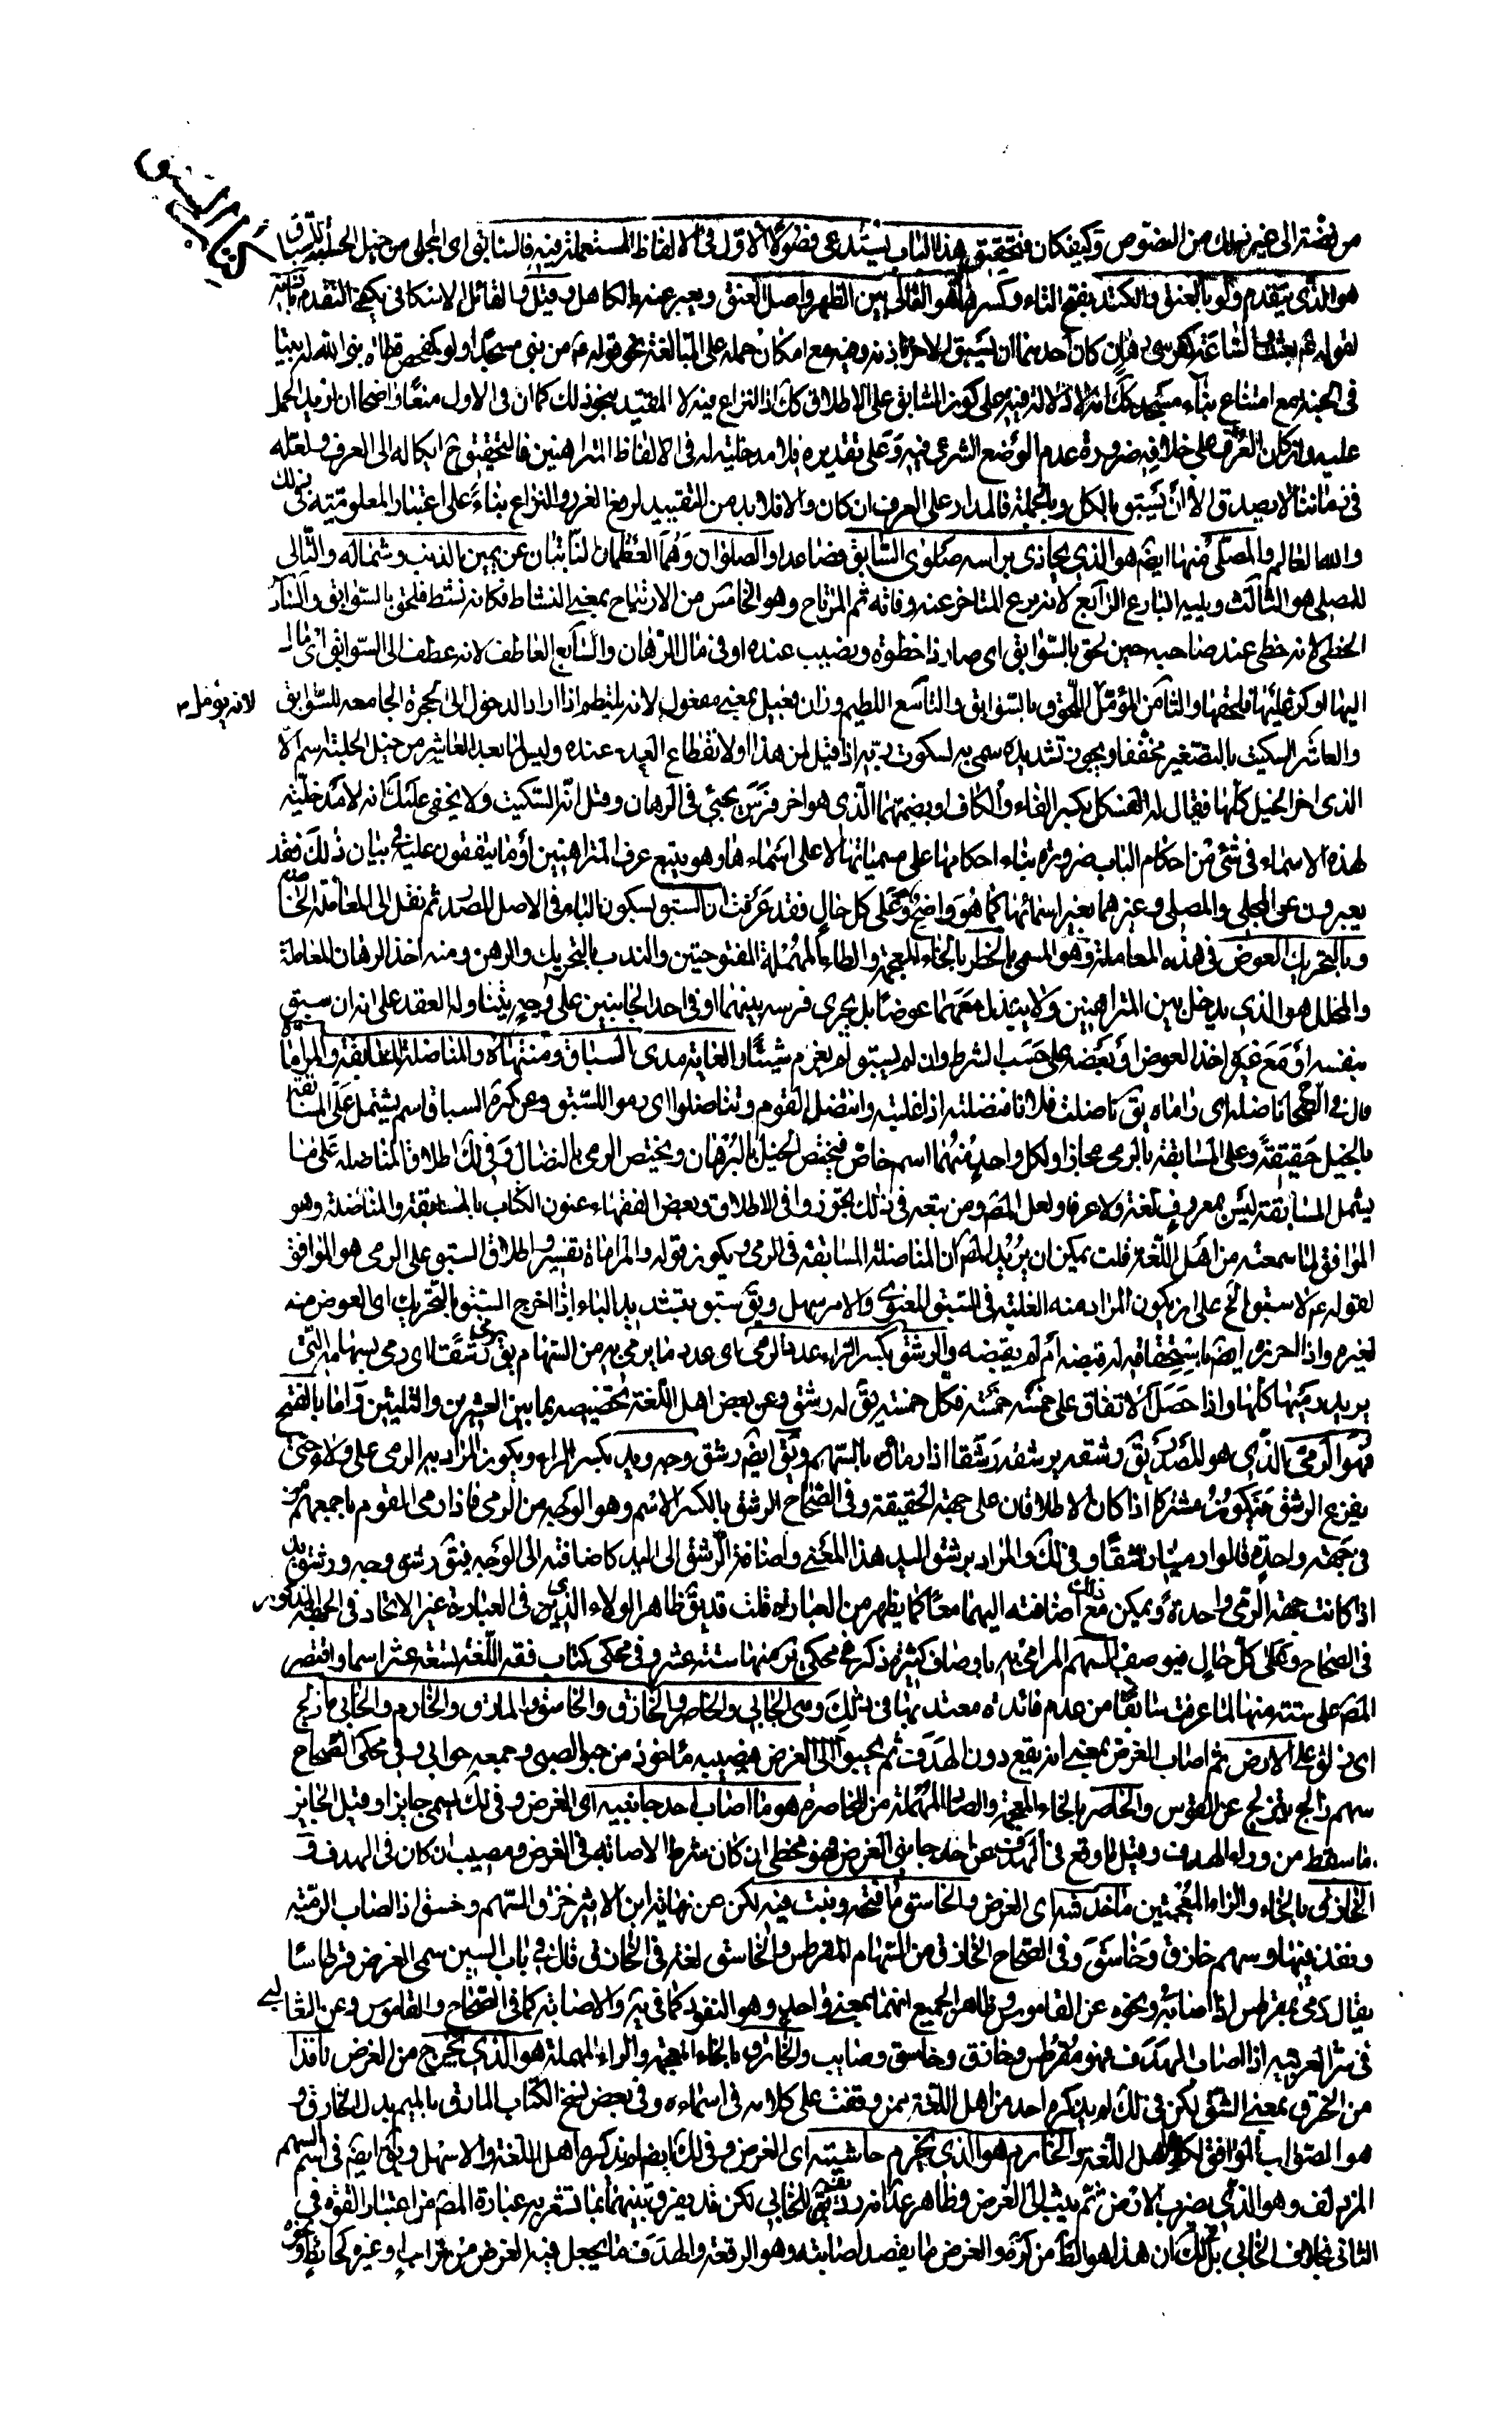 كتاب السبق
من فضة الى غير ذلك من النصوص وكيف كان فتحقيق هذا الباب يستدعى فصولا الاول فى الالفاظ المستعملة فيه فالسابق اى المجلى من خيل الحلبة
هو الذى يتقدم ولو بالعنق والكتد بفتح التاء وكسرها وهو العالى بين الظهر واصل العنق ويعبر عنه بالكاهل وقيل والقائل الاسكافى يكفى التقدم باذنه
لقوله بعثت والساعة كفرسى رهان كان احدهما ان يسبق الاخر باذنه وفيه مع امكان حمله على المبالغة نحو قوله من بنى مسجدا ولو كمفحص قطاة بنى الله له بيتا
فى الجنة مع امتناع بناء مسجد كك انه لا دلالة فيه على كون السابق على الاطلاق كك اذ النزاع فيه لا المقيد بنحو ذلك كما ان فى الاول منعا واضحا ان اريد الحمل
عليه وان كان العرف على خلافه ضرورة عدم الوضع الشرعى فيه وعلى تقديره فلا مدخلية له فى الالفاظ المتراهنين فالتحقيق ايكاله الى العرف ولعله
فى زماننا لا يصدق الا ان يسبق بالكل وبالجملة فالمدار على العرف ان كان والا فلا بد من التقييد لرفع الغرر والنزاع بناء على اعتبار المعلومية فى ذلك
والله العالم والمصلى منها ايض هو الذى يحاذى براسه صلوى السابق فصاعدا والصلوان وهما العظمان النابتان عن يمين الذنب وشماله والتالى
للمصلى هو الثالث ويليه البارع الرابع لانه برع المتاخر عنه وفاته ثم المرتاح وهو الخامس من الارتياح بمعنى النشاط فكانه نشط فلحق بالسوابق والسادس
الحظى لانه حظى عند صاحبه حين لحق بالسوابق اى صار ذا حظوة ونصيب عنده او فى مال الرهان والسابع العاطف لانه عطف الى السوابق اى مال
اليها او كر عليها فلحقها والثامن المؤمل لانه يؤمل اللحوق بالسوابق والتاسع اللطيم وزان فعيل بمعنى مفعول لانه يلطم اذا اراد الدخول الى الحجرة الجامعة للسوابق
والعاشر السكيت بالتصغير مخففا ويجوز تشديده سمى به لسكوت ربه اذا قيل لمن هذا او لانقطاع العدد عنده وليس لما بعد العاشر من خيل الحلبة اسم الا
الذى اخر الخيل كلها فيقال له الفسكل بكسر الفاء والكاف او بضمهما الذى هو اخر فرس يجئ فى الرهان وقيل انه السكيت ولا يخفى عليك انه لا مدخلية
لهذه الاسماء فى شئ من احكام الباب ضرورة بناء احكامها على مسمياتها لا على اسماءها وهو يتبع عرف المتراهنين او ما يتفقون عليه فى بيان ذلك فقد
يعبرون عن المجلى والمصلى وغيرهما بغير اسمائها كما هو واضح وعلى كل حال فقد عرفت ان السبق بسكون الباء فى الاصل المصدر ثم نقل الى المعاملة الخاصة
وبالتحريك العوض فى هذه المعاملة وهو المسمى بالخطر بالخاء المعجمة والطاء المهملة المفتوحتين والندب بالتحريك والرهن ومنه اخذ الرهان للمعاملة
والمحلل هو الذى يدخل بين المتراهنين ولا يبذل معهما عوضا بل يجرى فرسه بينهما او فى احد الجانبين على وجه يتناوله العقد على انه ان سبق
بنفسه او مع غيره اخذ العوض او بعضه على حسب الشرط وان لم يسبق لم يغرم شيئا والغاية مدى السباق ومنتهاه والمناضلة المسابقة والمراماة
قال فى الصحاح ناضله اى راماه يق ناضلت فلانا فنضلته اذا غلبته وانتضل القوم وتناضلوا اى رموا للسبق وعن كره السباق اسم يشتمل على المسابقة
بالخيل حقيقة وعلى المسابقة بالرمى مجازا ولكل واحد منهما اسم خاص فيختص الخيل بالرهان ويختص الرمى بالنضال وفى لك اطلاق المناضلة على ما
يشمل المسابقة ليس بمعروف لغة ولا عرفا ولعل المص ومن تبعه فى ذلك تجوزوا فى الاطلاق وبعض الفقهاء عنون الكتاب بالمسابقة والمناضلة وهو
الموافق لما سمعته من اهل اللغة قلت يمكن ان يريد المص ان المناضلة المسابقة فى الرمى ويكون قوله والمراماة تفسيرا واطلاق السبق على الرمى هو الموافق
لقوله لا سبق الخ على ان يكون المراد منه الغلبة فى السبق المعنوى والامر سهل ويق سبق بتشديد الباء اذا اخرج السبق بالتحريك اى العوض منه
لغيره واذا احرزه ايض باستحقاقه له قبضه ام لم يقبضه والرشق بكسر الراء عدد الرمى اى عدد ما يرمى به من السهام يق رمى رشقا اى رمى بسهامه التى
يريد رميها كلها واذا حصل الاتفاق على خمسة خمسة فكل خمسة يق له رشق وعن بعض اهل اللغة تخصيصه بما بين العشرين والثلثين واما بالفتح
فهو الرمى الذى هو المصدر يق رشقه يرشقه رشقا اذا رماه بالسهم ويق ايض رشق وجه ويد بكسر الراء ويكون المراد به الرمى على ولاء حتى
يفرغ الرشق فيكون مشتركا اذا كان الاطلاقان على جهة الحقيقة وفى الصحاح الرشق بالكسر الاسم وهو الوجه من الرمى فاذا رمى القوم باجمعهم
فى جهة واحدة قالوا رمينا رشقا وفى لك والمراد برشق اليد هذا المعنى واضافة الرشق الى اليد كاضافته الى الوجه فيق رشق وجه ورشق يد
اذا كانت جهة الرمى واحدة ويمكن مع ذلك اضافته اليهما معا كما يظهر من العبارة قلت قد يق ظاهر الولاء الذى فى العبارة غير الاتحاد فى الجهة المذكور
فى الصحاح وعلى كل حال فيوصف السهم المرامى به باوصاف كثيرة ذكر فى محكى كره منها ستة عشر وفى محكى كتاب فقه اللغة تسعة عشر اسما واقتصر
المص على ستة منها لما عرفت سابقا من عدم فائدة معتد بها فى ذلك وهى الحابى والخاصر والخازق والخاسق والمارق والخارم والحابى ما زلج
اى زلق على الارض ثم اصاب الغرض بمعنى انه يقع دون الهدف ثم يحبو الى الغرض فيصيبه ماخوذ من حبو الصبى وجمعه حوابى وفى محكى الصحاح
سهم زالج يتزلج عن القوس والخاصر بالخاء المعجمة والصاد المهملة من الخاصرة هو ما اصاب احد جانبيه اى الغرض وفى لك يسمى جايزا وقيل الجايز
ما سقط من وراء الهدف وقيل ما وقع فى الهدف عن احد جانبى الغرض فهو مخطى ان كان شرط الاصابة فى الغرض ومصيب ان كان فى الهدف و
الخازق بالخاء والزاء المعجمتين ما خدشه اى الغرض والخاسق ما فتحه وثبت فيه لكن عن نهاية ابن الاثير خزق السهم وخسق اذا اصاب الرمية
ونفذ فيها وسهم خازق وخاسق وفى الصحاح الخازق من السهام المقرطس والخاسق لغة فى الخازق قال فى باب السين سمى الغرض قرطاسا
يقال رمى فقرطس اذا اصابه ونحوه عن القاموس وظاهر الجميع انهما بمعنى واحد وهو النفوذ كما فى يه والاصابة كما فى الصحاح والقاموس وعن الثعالبى
فى سر العربية اذا اصاب الهدف فهو مقرطس وخازق وخاسق وصايب والخارق بالخاء المعجمة والراء المهملة هو الذى يخرج من الغرض نافذا
من الخرق بمعنى الشق لكن فى لك لم يذكره احد من اهل اللغة ممن وقفت على كلامه فى اسماءه وفى بعض نسخ الكتاب المارق بالميم بدل الخارق و
هو الصواب الموافق لكلام اهل اللغة والخارم هو الذى يخرم حاشيته اى الغرض وفى لك ايض لم يذكره اهل اللغة والامر سهل ويق ايض فى اسم السهم
المزدلف وهو الذى يضرب الارض ثم يثب الى الغرض وظاهر عد انه رديف للحابى لكن قد يفرق بينهما بما تشعر به عبارة المص من اعتبار القوة فى
الثانى بخلاف الحابى بل فى لك ان هذا هو الظ من كره والغرض ما يقصد اصابته وهو الرقعة والهدف ما يجعل فيه الغرض من تراب او غيره كحايط ونحوه